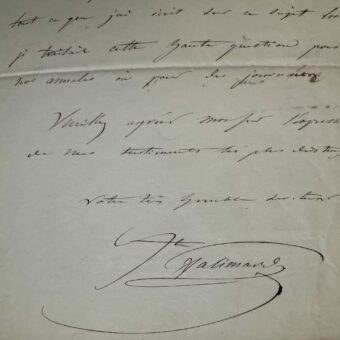 tout ce que j'ai écrit sur ce sujet
je traitais cette haute question pour
nos annales ou pour des journaux
Veuillez agréer monsieur
de mes sentiments les plus
Votre très humble serviteur
Galimard